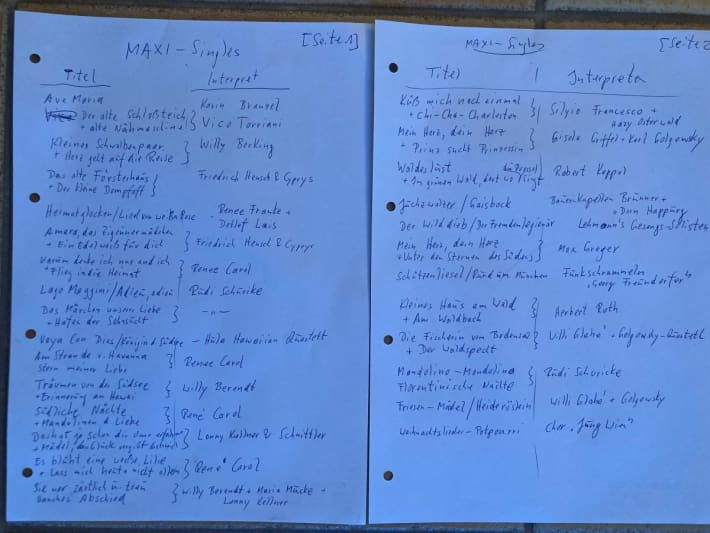 MAXI - Singles [Seite 1]
Titel Interpret
Ave Maria Karin Branzel
Der alte Schloßteich
+ alte Nähmaschine } Vico Torriani
Kleines Schwalbenpaar
+ Herz geht auf die Reise } Willy Berking
Das alte Försterhaus
+ Der kleine Dompfaff } Friedrich Hensch & Cyprys
Heimatglocken/Lied Rose - Renee Franke +
Detlof Lais
Amara, das Zigeunermädchen
+ Ein Edelweiß für dich } Friedrich Hensch & Cyprys
Warum denke ich nur and ich
+ Flieg in die Heimat } Renee Carol
Lago Maggini/Adieu, adieu } Rüdi Schürike
Das Märchen unserer Liebe
+ Hafen der Sehnsucht } - " -
Vaya Con Dios/Königin d Südsee - Hula Hawaiian Quartett
Am Strande v. Havanna
Stern meiner Liebe } Renee Carol
Träumen von der Südsee
+ Erinnerung an Hawai } Willy Berendt
Südliche Nächte
+ Mandolinen d Liebe } René Carol
Das hat ja schon die Oma erfahren
+ Mädel, Glück } Lonny Kellner & Schnittler
Es blüht eine weiße Lilie
+ Lass mich heute nicht allein } René Carol
Sie war zärtlich u. treu
Abschied } Willy Berendt + Maria Mücke +
Lonny Kellner
MAXI - Singles [Seite 2
Titel | Interpreten
Küß mich noch einmal
+ Chi-Cha-Charleston } Silvio Francesco +
Hazy Osterwald
Mein Herz, dein Herz
+ Prinz sucht Prinzessin } Gisela Griffel + Karl Golgowsky
Waldeslust
+ Im grünen Wald, dort wo } Robert Kappol
Juchzwalzer / Gaisbock } Bauernkapellen Brünner +
Dorn Happurg
Der Wilddieb/Der Fremdenlegionär Lehmann's Gesangs Solisten
Mein Herz, dein Herz
+ Unter den Sternen des Südens } Max Greger
Schützenliesel/Rund um München Funkschrammeln
"Georg Freundorfer"
Kleines Haus am Wald
+ Am Waldbach } Herbert Roth
Die Fischerin vom Bodensee
+ Der Waldspecht } Willi Glahé + Golgowsky-Quartett
Mandolino - Mandolina
Florentinische Nächte } Rüdi Schuricke
Friesen-Mädel/Heideröslein } Willi Glahé + Golgowsky
Weihnachtslieder-Potpourri Chor "Jung Wien"